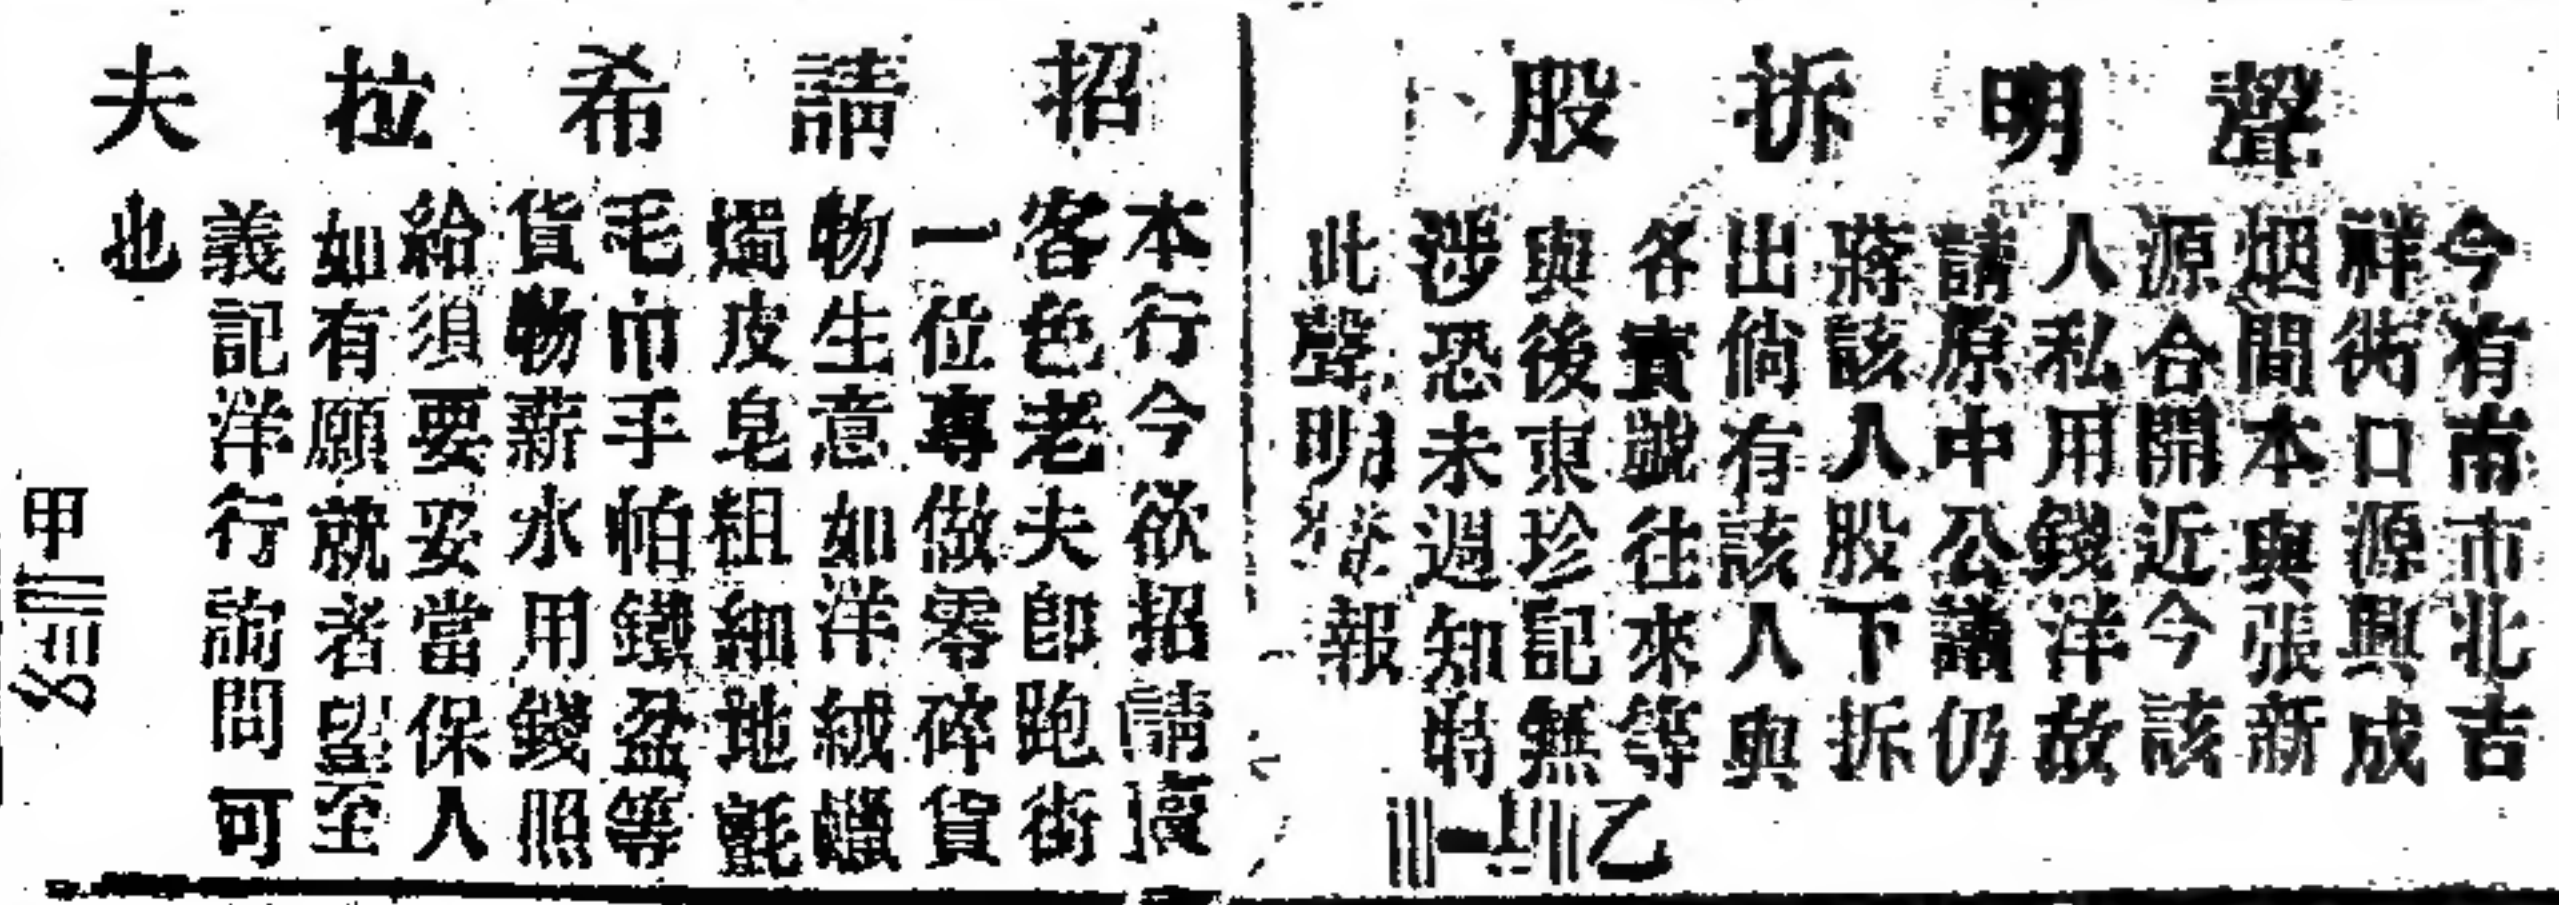 聲明拆股
今有南市北吉
祥衖口源興成
烟間本與張新
源合開近今該
人私用錢洋故
請原中公議仍
蔣該人股下拆
出倘有該人與
各賓號往來等
與後東珍記無
涉恐未週知特
此聲明登報
乙
招請希拉夫
本行今欲招請賣
客色老夫即跑街
一位專做零碎貨
物生意如洋絨蠟
燭皮皂粗細地氈
毛巾手帕鐵盆等
貨物薪水用錢照
給須要妥當保人
如有願就者望至
義記洋行詢問可
也
甲